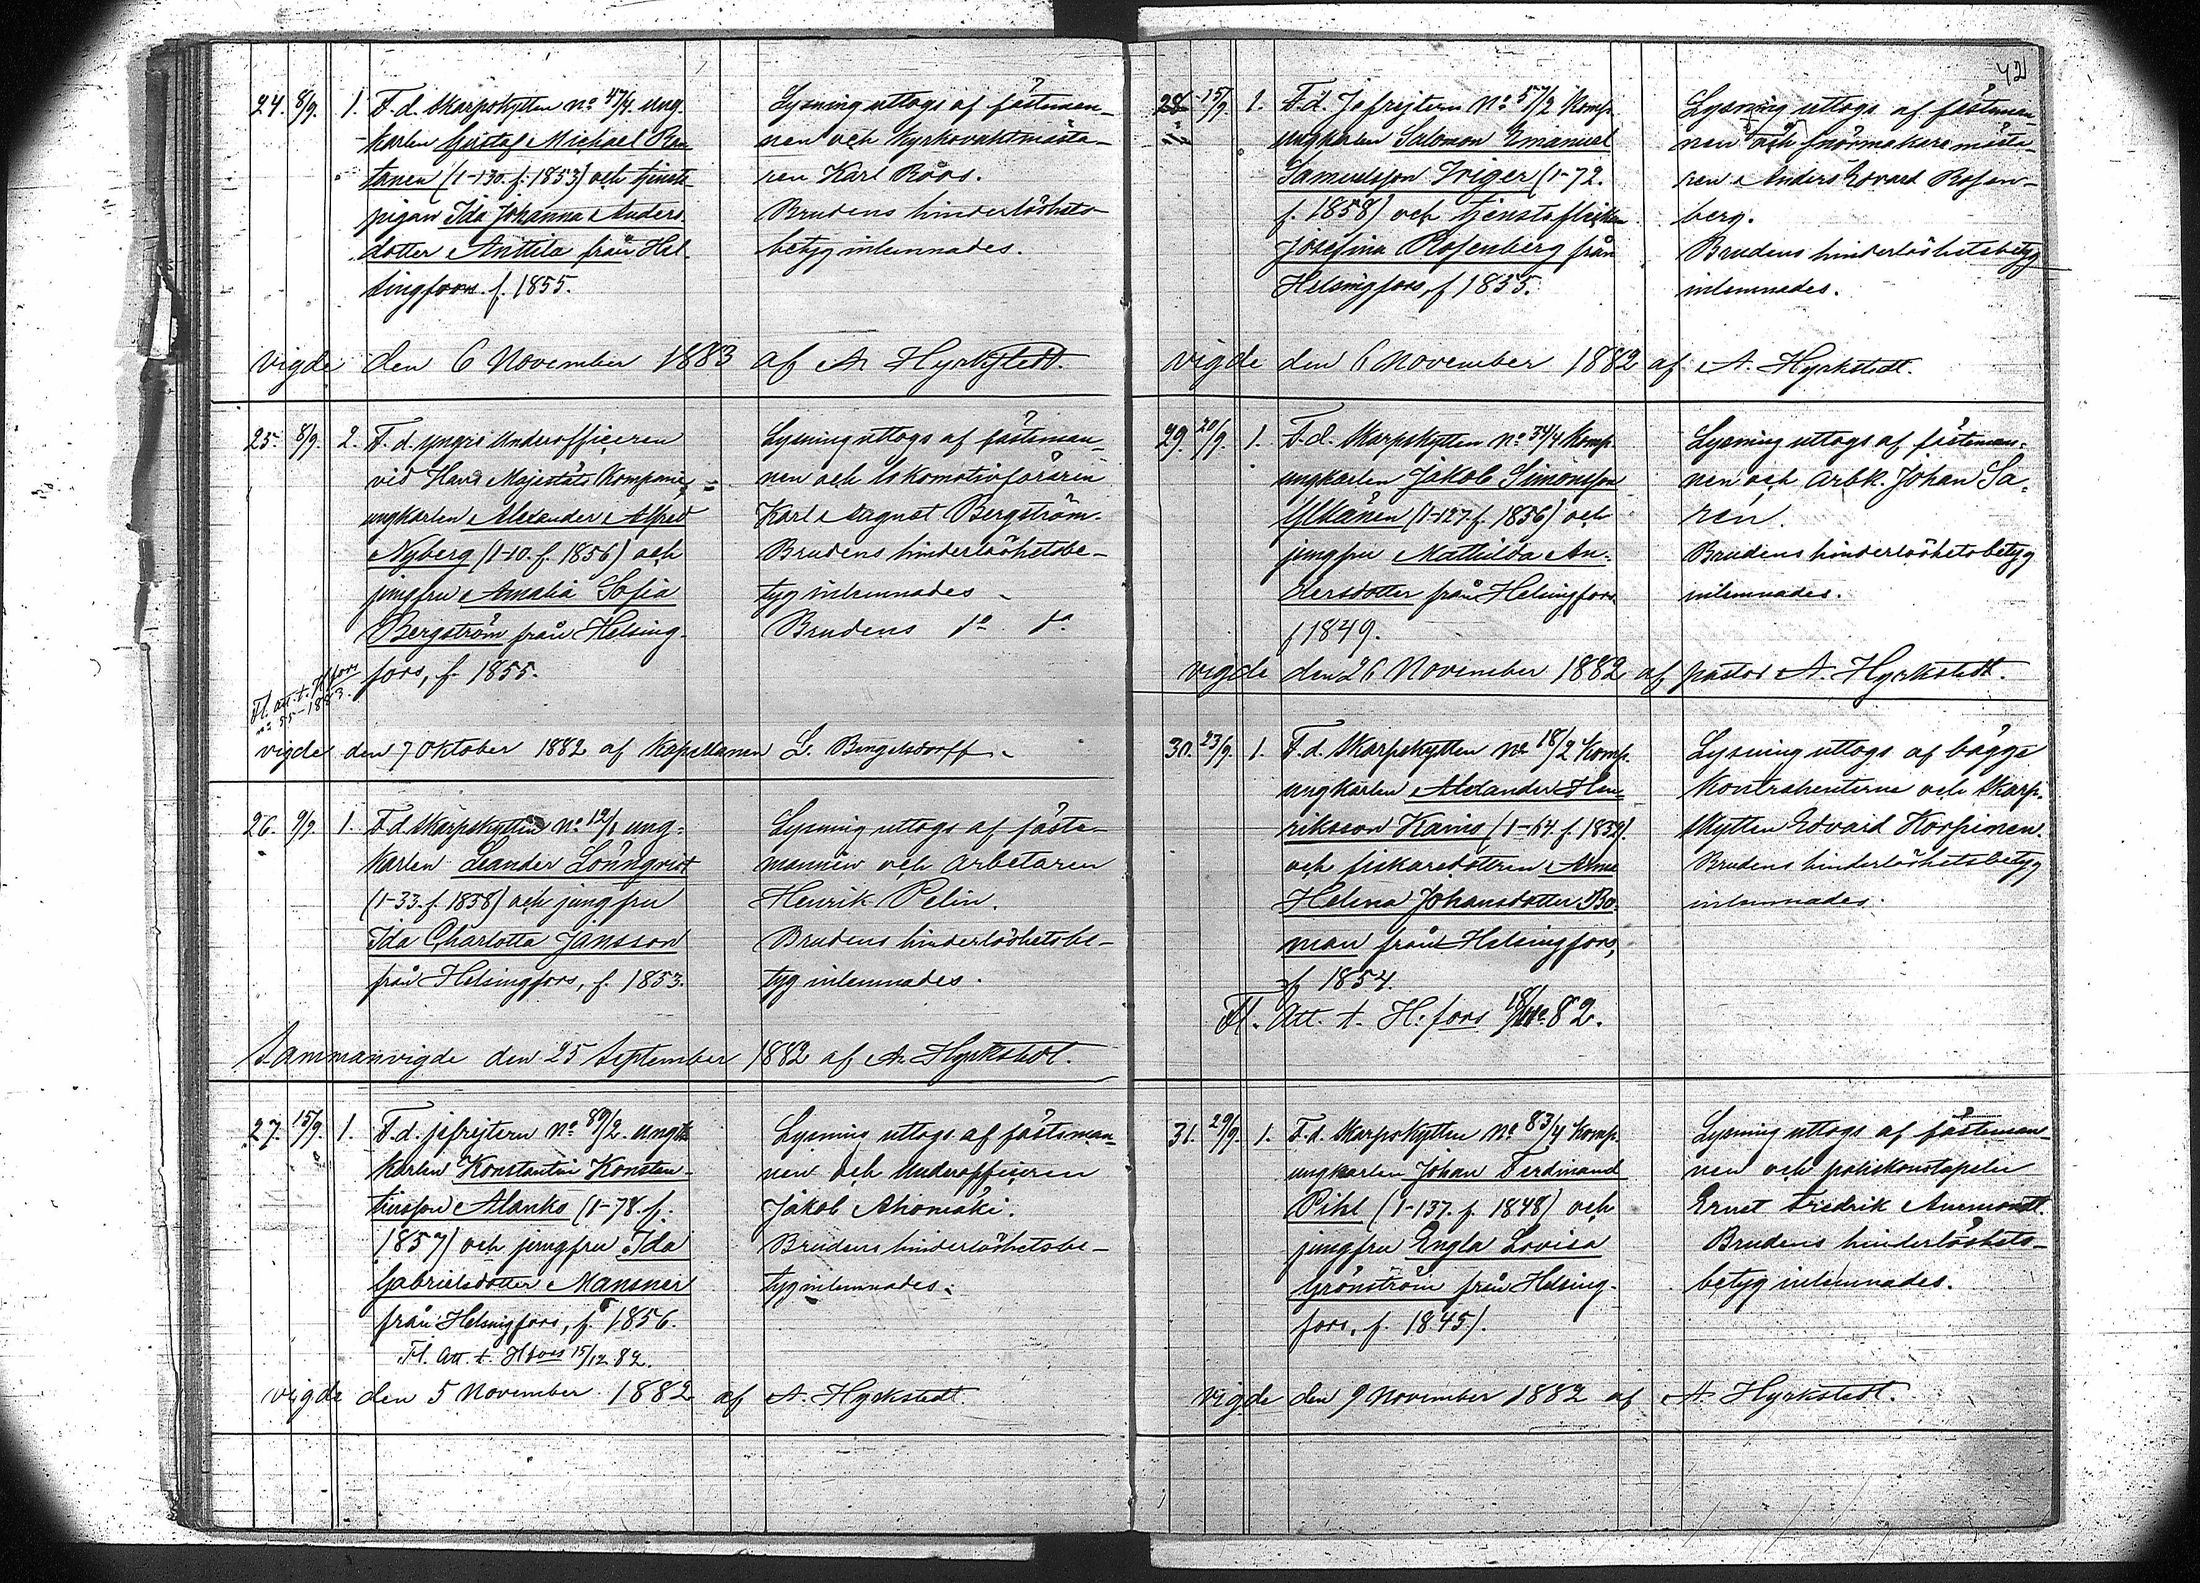 24. 8/9. 1. F. d. skarpskytten No 47/4. ung-
karlen Gustaf Michael Ran
tanen (1-130. f. 1853) och tjenste
pigan Ida Johanna Anders
dotter Anttila från Hel-
singfors. f. 1855.
Lysning uttogs af fästeman-
nen och Kyrkovaktmästa-
ren Karl Röös.
Brudens hinderlöshets-
betyg inlemnades.
vigde den 6 November 1883 af A. Hyrkstedt.
25. 8/9. 2. F. d. yngre Underofficeren
vid Hans Majestäts Kompani,
ungkarlen Alexander Alfred
Nyberg (1-10. f. 1856) och
jungfru Amalia Sofia
Bergström från Helsing-
fors, f. 1855.
Lysning uttogs af fästeman-
nen och lokomotivföraren
Karl August Bergström.
Brudens hinderlöshetsbe-
tyg inlemnades.
Brudens do do
Fl. att. t. H:fors
No 55-1883.
vigde den 7 Oktober 1882 af Kapellanen L. Bengelsdorff.
26. 9/9. 1. F. d. Skarpskytten No 12/1 ung-
karlen Leander Lönnqvist
(1-33. f. 1858) och jungfru
Ida Charlotta Jansson
från Helsingfors, f. 1853.
Lysning uttogs af fäste-
mannen och arbetaren
Henrik Pelin.
Brudens hinderlöshetsbe-
tyg inlemnades.
Sammanvigde den 25 September 1882 af A. Hyrkstedt.
27. 15/9. 1. F. d. jefrejtern No 89/2. ung
karlen Konstantin Konstan-
tinsson Alanko (1-78. f.
1857) och jungfru Ida
Gabrielsdotter Mansner
från Helsingfors, f. 1856.
Fl. att. t. H:fors 15/12 82.
Lysning uttogs af fästeman-
nen och Underofficeren
Jakob Ahomäki.
Brudens hinderlöshetsbe-
tyg inlemnades.
vigde den 5 November 1882 af A. Hyrkstedt.
42
28 15/9 1. F. d. Jefrejtern No 57/2 Komp.
ungkarlen Salomon Emanuel
Samuelsson Iriger (1-72.
f. 1858) och tjensteflickan
Josefina Rosenberg från
Helsingfors, f 1855.
Lysning uttogs af fästeman-
nen och snörmakare mäste-
ren Anders Edvard Rosen-
berg.
Brudens hinderlöshetsbetyg
inlemnades.
vigde den 6 November 1882 af A. Hyrkstedt.
29. 20/9. 1. F. d. Skarpskytten No 34/4 Komp.
ungkarlen Jakob Simonsson
Yltänen (1-127. f. 1856) och
jungfru Mathilda An-
dersdotter från Helsingfors.
f 1849.
Lysning uttogs af fästeman-
nen och arbk. Johan Sa-
rén.
Brudens hinderlöshetsbetyg
inlemnades.
vigde den 26 November 1882 af pastor A. Hyrkstedt.
30. 23/9. 1. F. d. Skarpskytten No 18/2 Komp.
ungkarlen Alexander Hen-
riksson Kaino (1-64. f. 1859).
och fiskaredottren Alma
Helena Johansdotter Bo-
man från Helsingfors,
f 1854.
Fl. Att. t. H:fors 82.
Lysning uttogs af bägge
Kontrahenterne och Skarp-
skytten Edvard Korpinen.
Brudens hinderlöshetsbetyg
inlemnades.
31. 29/9. 1. F. d. Skarpskytten No 83/4 Komp.
ungkarlen Johan Ferdinand
Pihl (1-137. f. 1848) och
jungfru Engla Lovisa
Grönström från Helsing-
fors, f. 1845).
Lysning uttogs af fästeman-
nen och poliskonstapeln
Ernst Fredrik
Brudens hinderlöshets-
betyg inlemnades.
vigde den 9 November 1882 af A. Hyrkstedt.